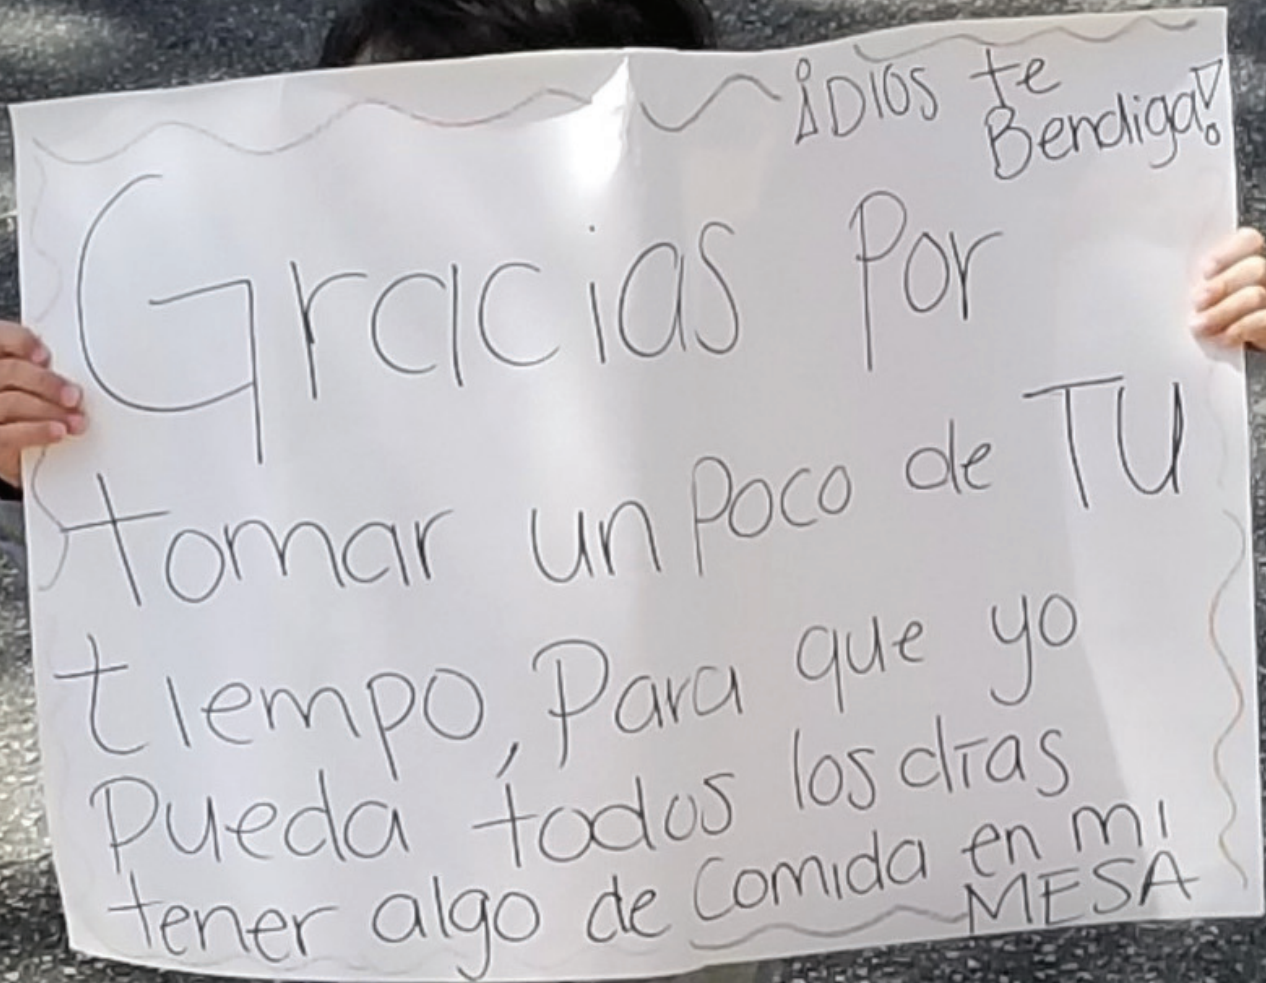 ¡DIOS te
Bendiga!
Gracias Por
tomar un Poco de TU
tiempo, Para que yo
Pueda todos los días
tener algo de Comida en mi
MESA